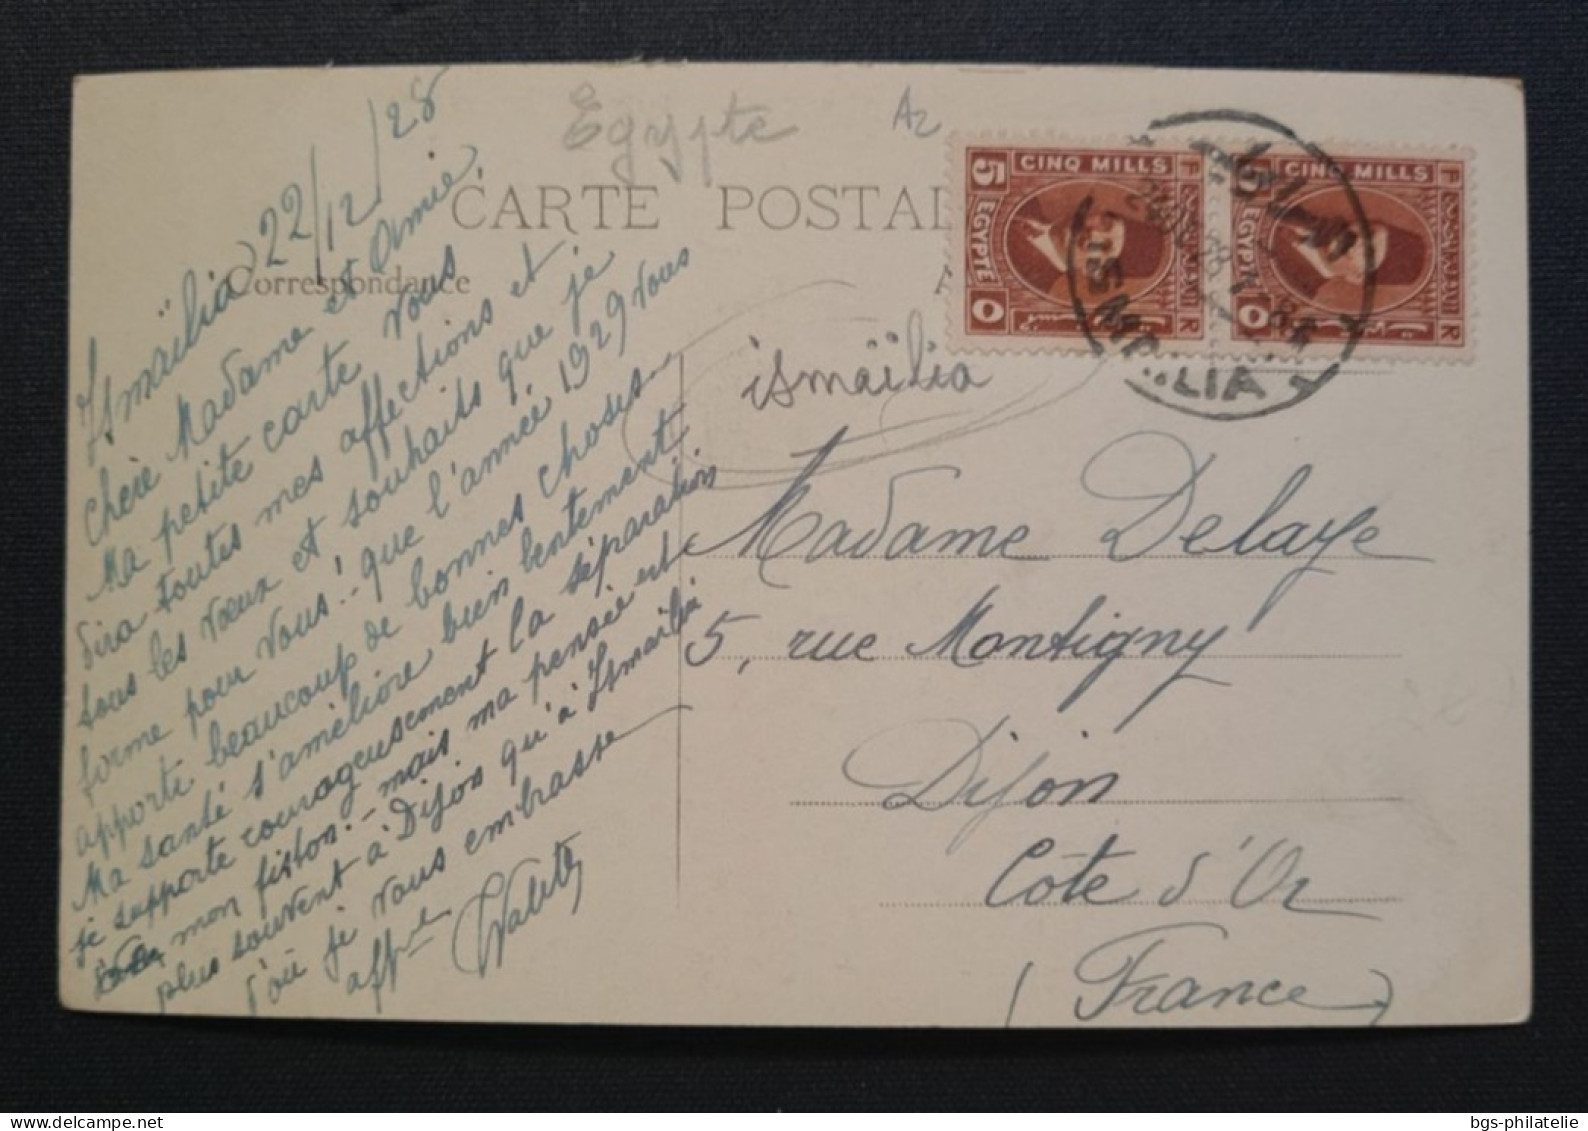 Egypte
A2
CARTE POSTAL
Correspondance
Ismaïlia 22/12/28
Chère Madame et Amie
Ma petite carte vous
dira toutes mes affections et
tous les vœux et souhaits que je
forme pour vous! que l'année 1929 vous
apporte beaucoup de bonnes choses
Ma santé s'améliore bien lentement
je supporte courageusement la séparation
mon fiston - mais ma pensée est
plus souvent à Dijon qu'à Ismaïlia
d'où je vous embrasse
aff.
5 CINQ MILLS
EGYPTE
5 CINQ MILLS
EGYPTE
ISMAILIA
ismaïlia
Madame Delaye
5, rue Montigny
Dijon
Côte d'Or
(France)
bgs-philatelie